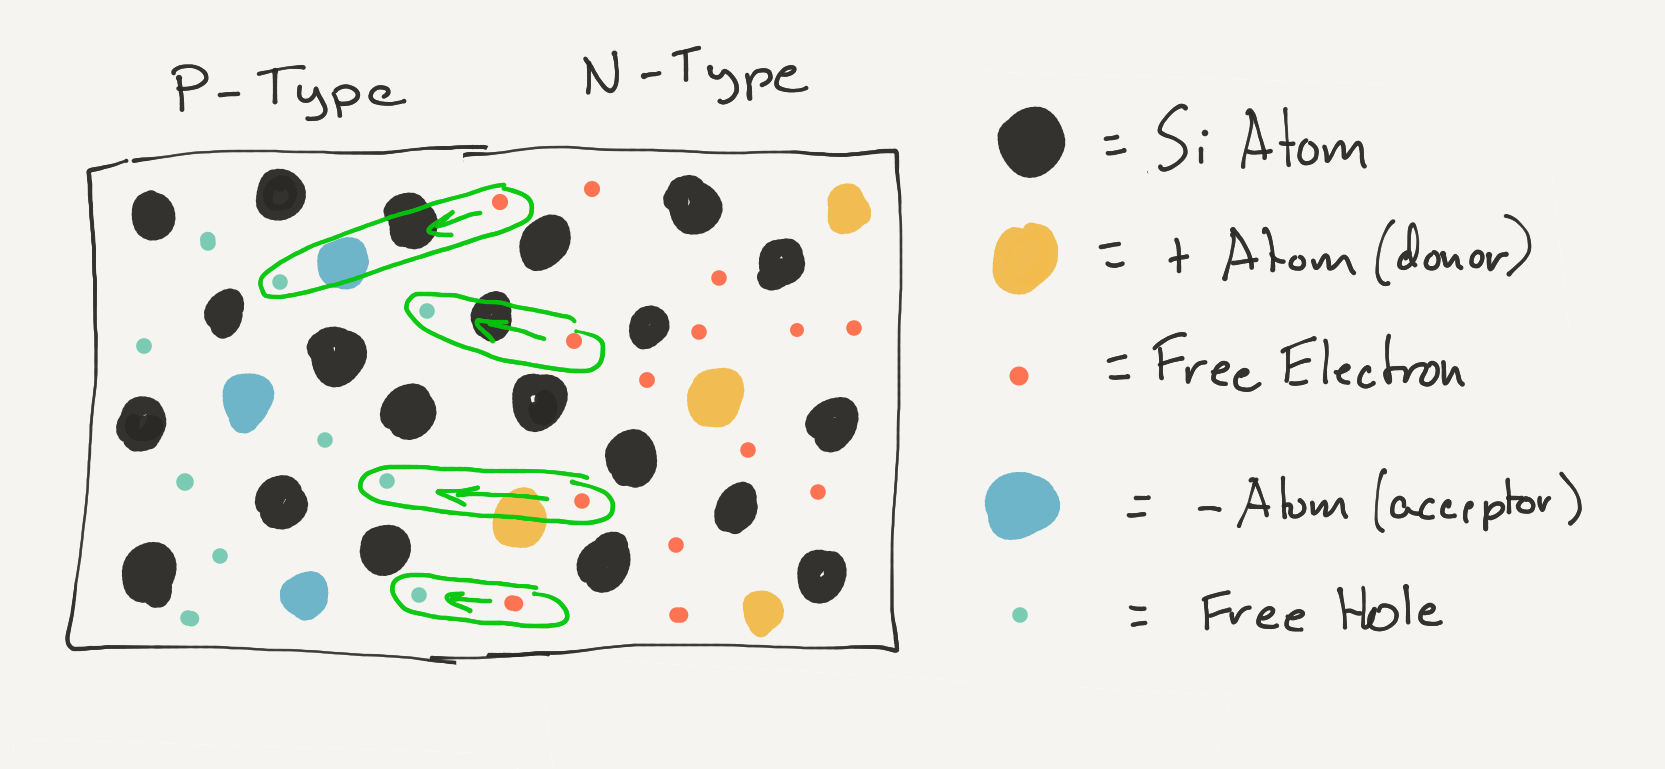 P-Type
N-Type
= Si Atom
= + Atom (donor)
= Free Electron
= - Atom (acceptor)
= Free Hole